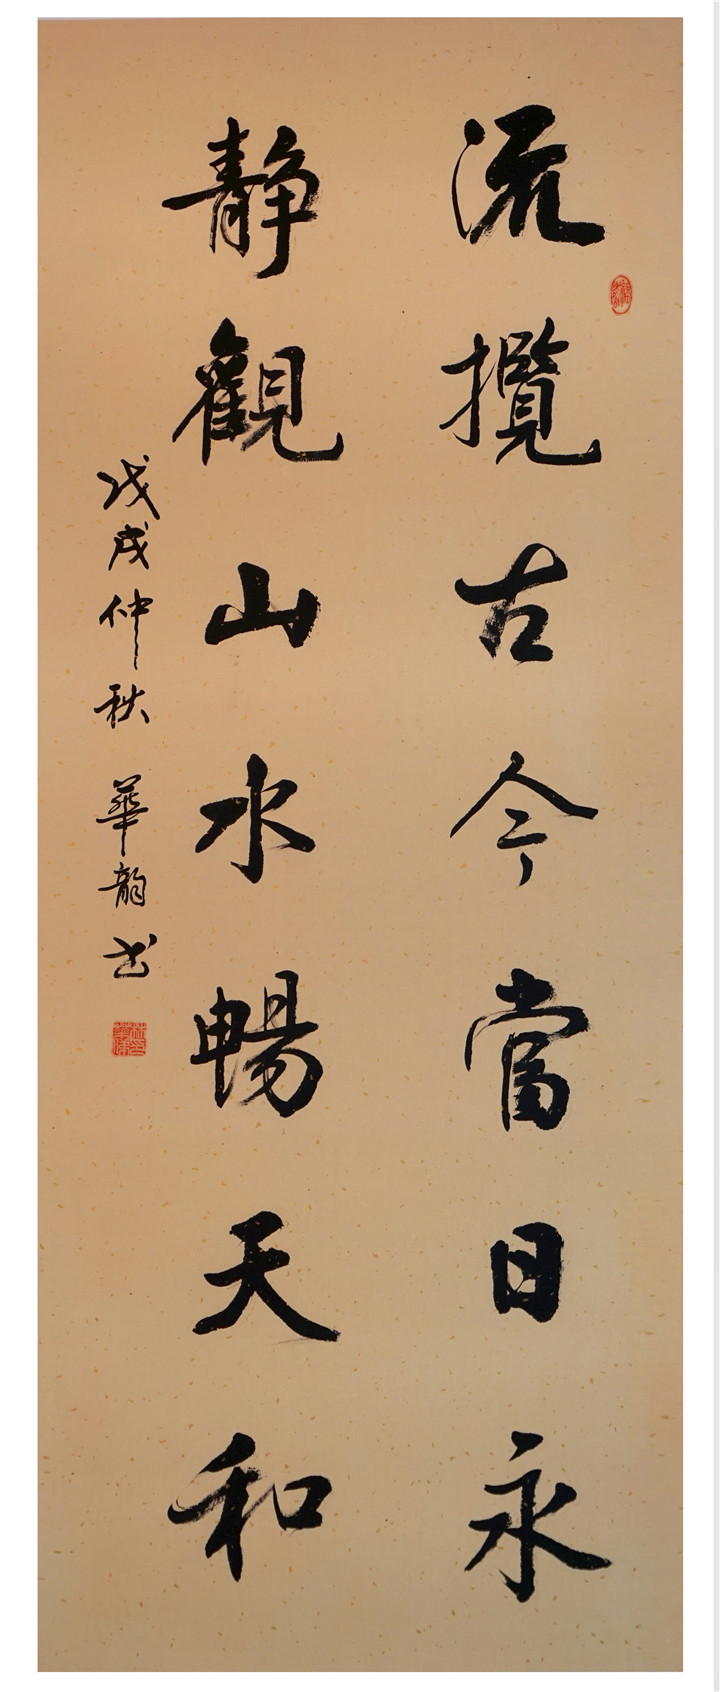 流攬古今當日永
靜觀山水暢天和
戊戌仲秋 華韻书